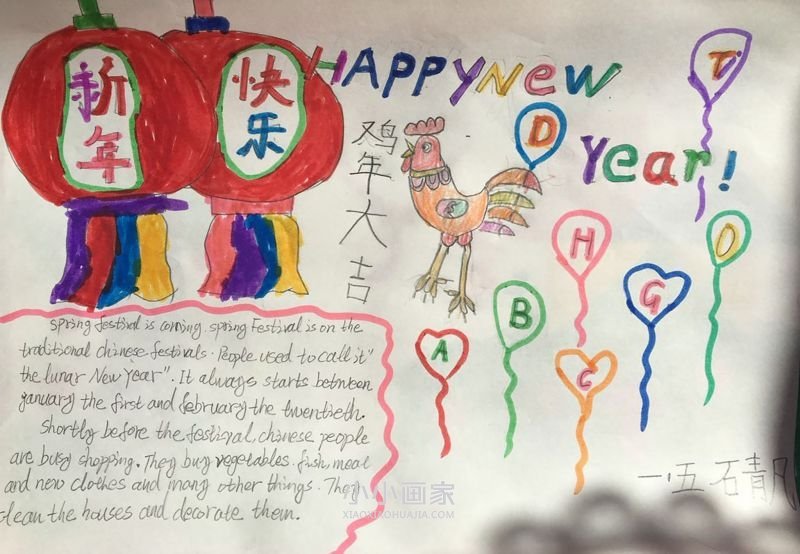 新年
快乐
HAPPY NEW
Year!
鸡年大吉
T
D
H
O
G
B
A
C
spring festival is coming. spring Festival is on the
traditional chinese festivals. People used to call it "
the lunar New Year". It always starts between
january the first and february the twentieth.
shortly before the festival, chinese people
are busy shopping. They buy vegetables. fish, meat
and new clothes and many other things. The
clean the houses and decorate them.
一.五 石青凡
小小画家
XIAOXIAOHUAJIA.COM